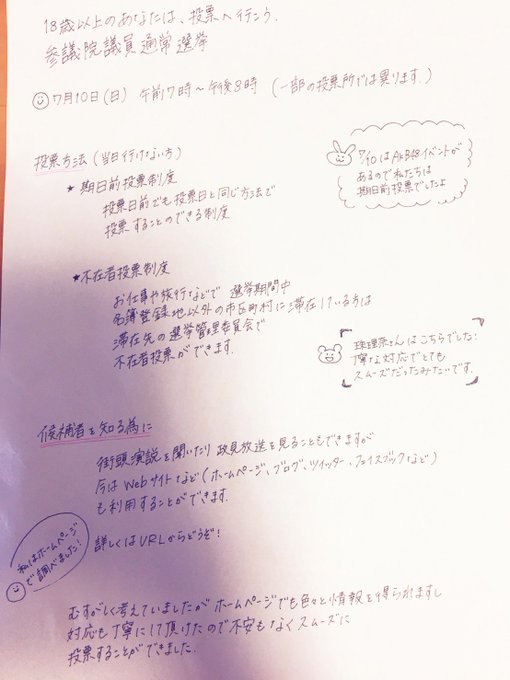 18歳以上のあなたは、投票へ行こう。
参議院議員通常選挙
7月10日(日) 午前7時～午後8時 (一部の投票所では異ります。)
投票方法(当日行けない方)
★期日前投票制度
投票日前でも投票日と同じ方法で
投票することのできる制度
7/10はAKB48イベントが
あるので私たちは
期日前投票でしたよ
★不在者投票制度
お仕事や旅行などで 選挙期間中
名簿登録地以外の市区町村に滞在している方は
滞在先の選挙管理委員会で
不在者投票ができます。
珠理奈さんはこちらでした!
丁寧な対応でとても
スムーズだったみたいです。
候補者を知る為に
街頭演説を聞いたり 政見放送を見ることもできますが
今は Webサイトなど(ホームページ、ブログ、ツイッター、フェイスブックなど)
も利用することができます。
詳しくはURLからどうぞ!
私はホームページ
で調べました!
むずがしく考えていましたが ホームページでも色々と情報を得られますし
対応も丁寧にして頂けたので不安もなくスムーズに
投票することができました。